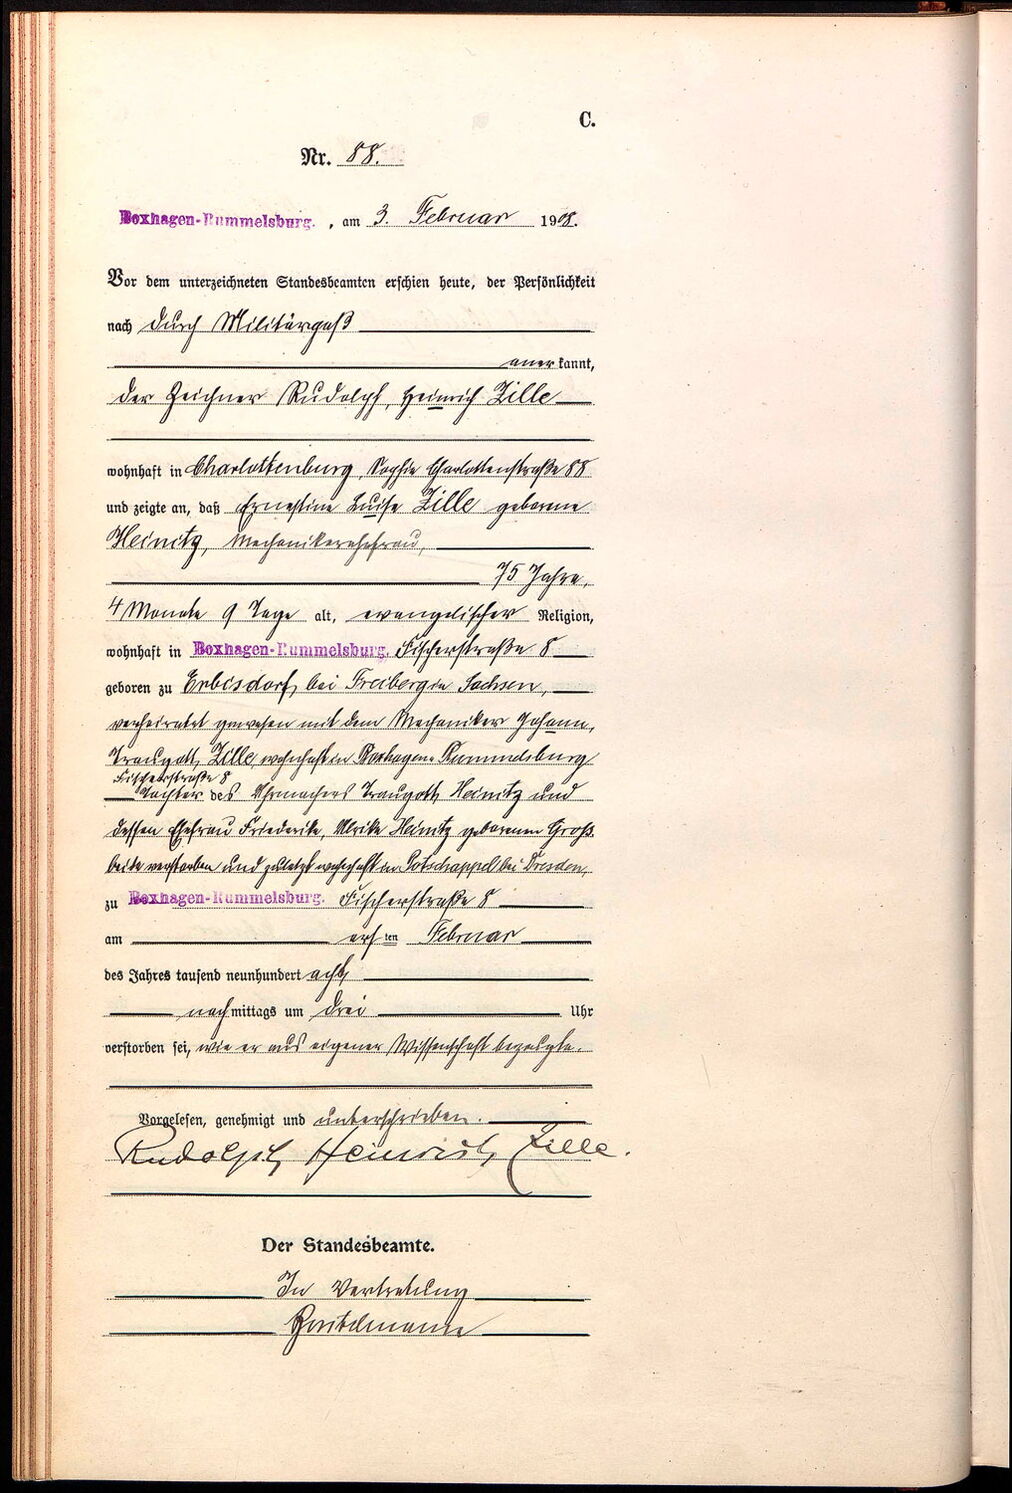 C.
Nr. 88.
Boxhagen-Rummelsburg. , am 3. Februar 1908.
Vor dem unterzeichneten Standesbeamten erschien heute, der Persönlichkeit
nach durch Militärpaß
anerkannt,
der Zeichner Rudolph, Heinrich Zille
wohnhaft in Charlottenburg, Sophie Charlottenstraße 88
und zeigte an, daß Ernestine Luise Zille geborene
Heinitz, Mechanikerehefrau,
75 Jahre,
4 Monate 9 Tage alt, evangelischer Religion,
wohnhaft in Boxhagen-Rummelsburg. Fischerstraße 8
geboren zu Erbisdorf bei Freiberg in Sachsen,
verheiratet gewesen mit dem Mechaniker Johann,
Traugott Zille, wohnhaft in Boxhagen-Rummelsburg
Fischerstraße 8
Tochter des Uhrmachers Traugott Heinitz und
dessen Ehefrau Friederike, Ulrike Heinitz geborenen Groß
beide verstorben und zuletzt wohnhaft in Potschappel bei Dresden,
zu Boxhagen-Rummelsburg. Fischerstraße 8
am ersten Februar
des Jahres tausend neunhundert acht
nachmittags um drei Uhr
verstorben sei, wie er aus eigener Wissenschaft bezeugte.
Vorgelesen, genehmigt und unterschrieben.
Rudolph Heinrich Zille.
Der Standesbeamte.
In Vertretung